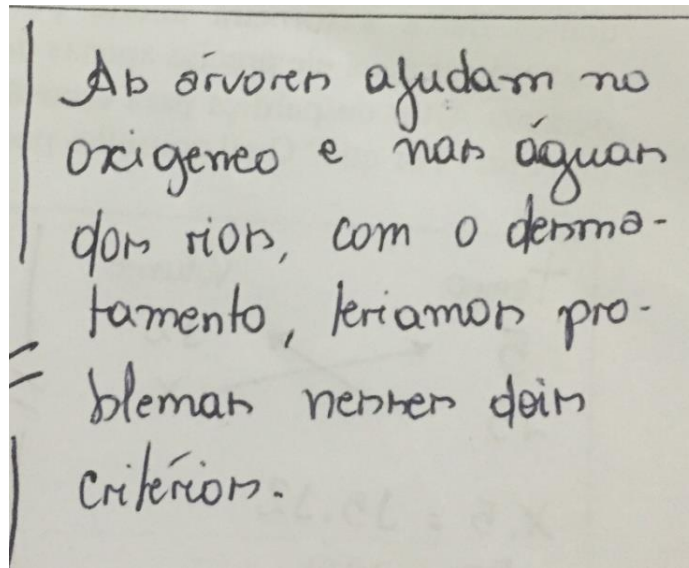 As árvores ajudam no
oxigeneo e nas águas
dos rios, com o desma-
tamento, teriamos pro-
blemas nesses dois
critérios.